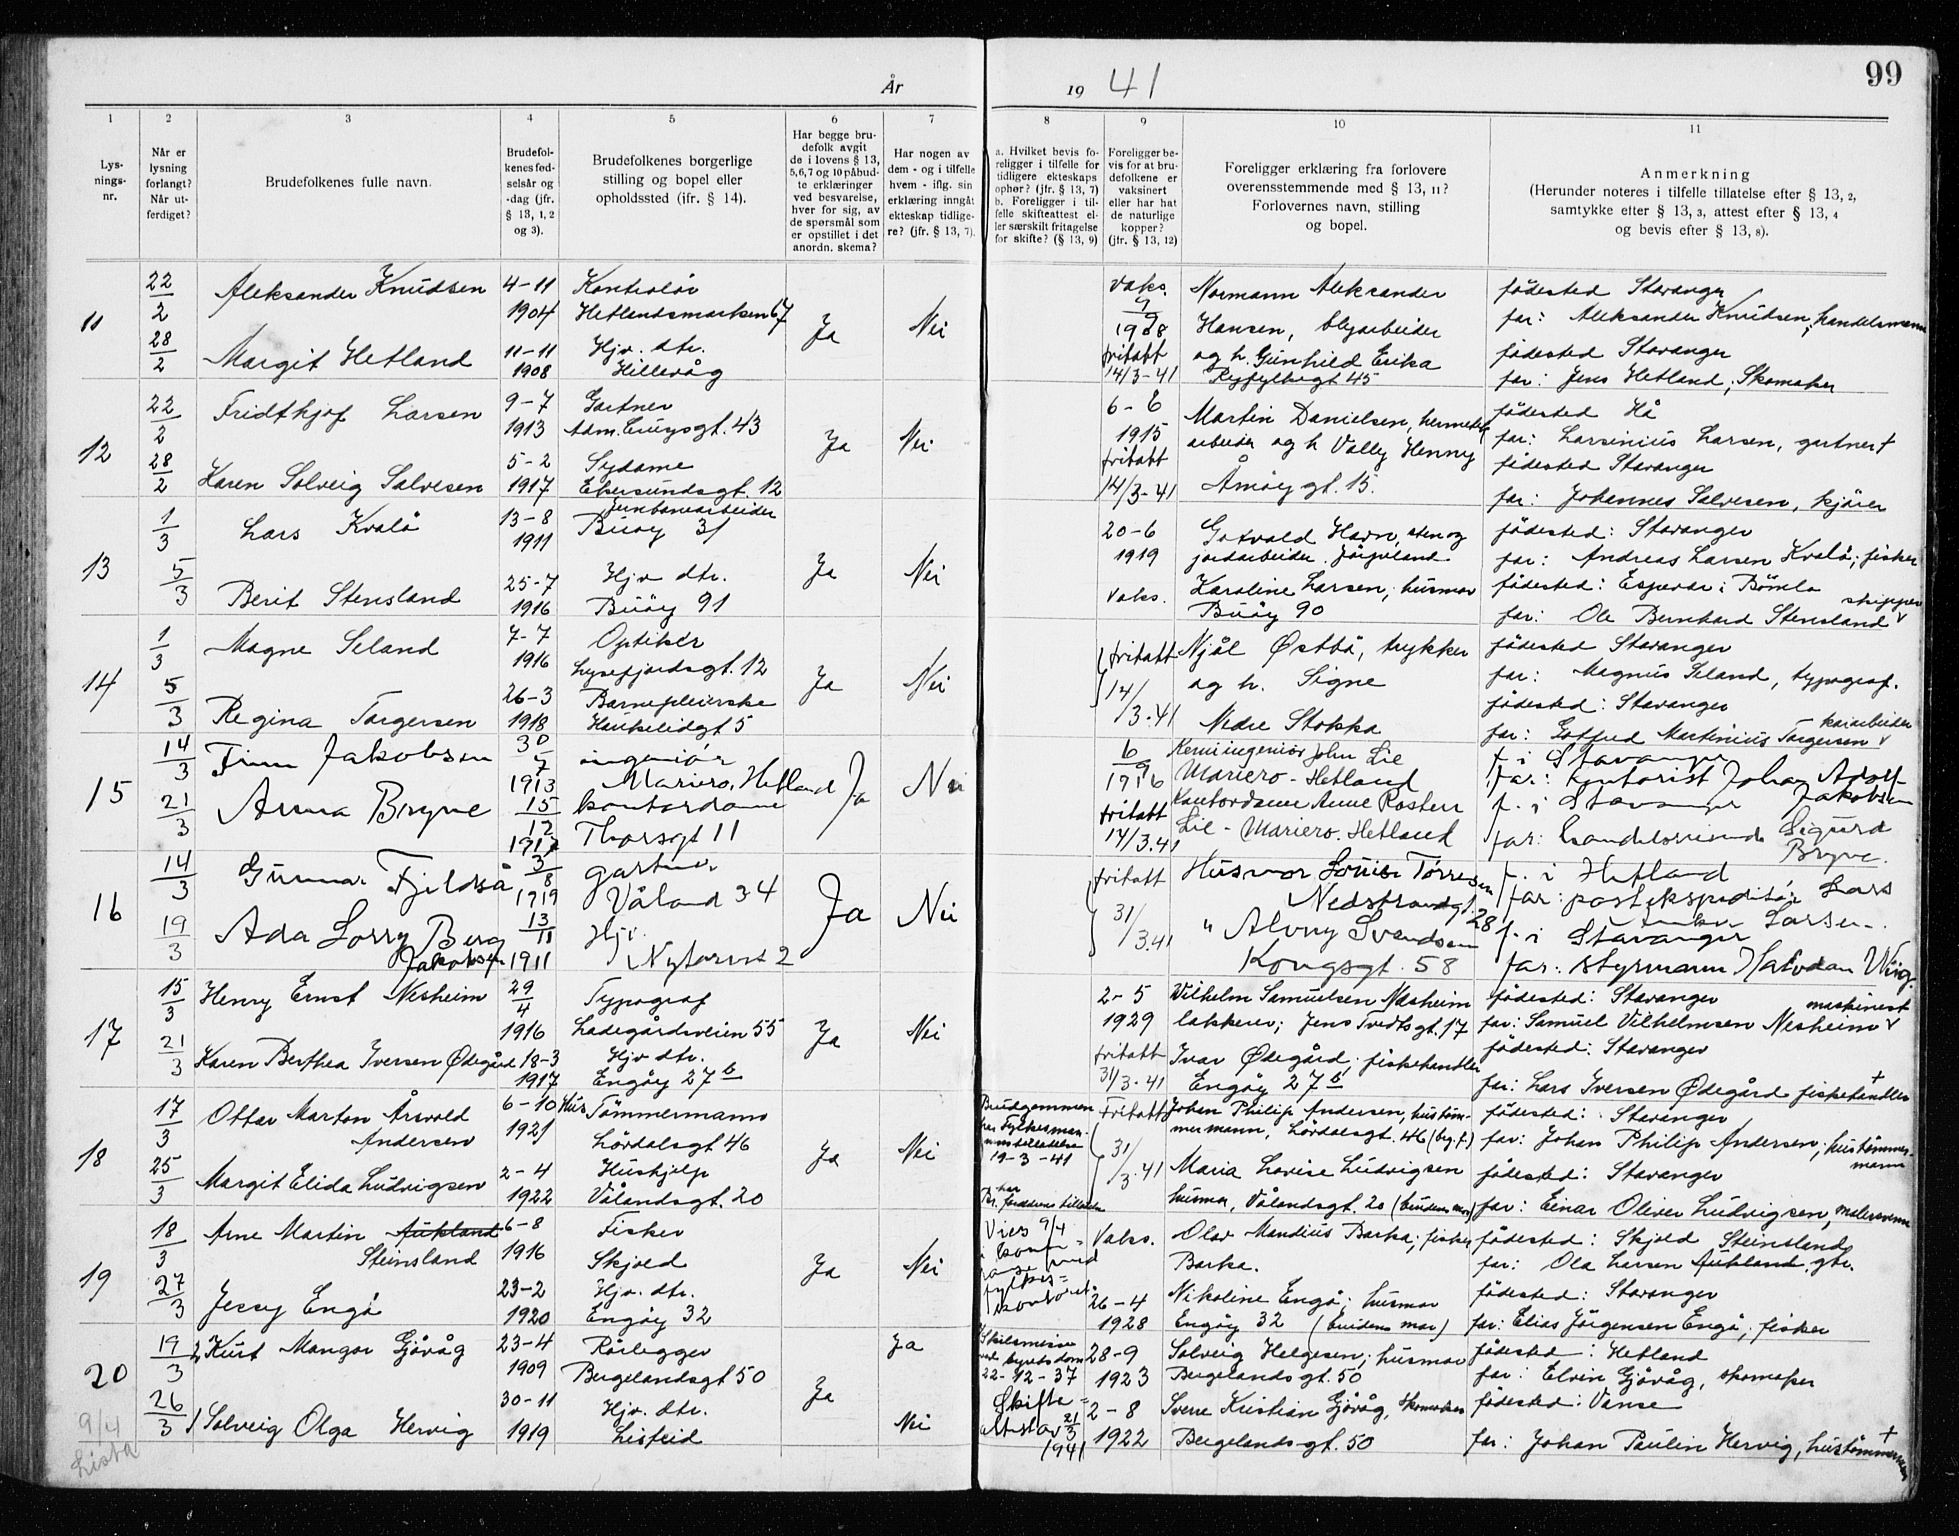 År 19 41
99
1 2 3 4 5 6 7 8 9 10 11
Lys-
nings-
nr.
Når er
lysning
forlangt?
Når ut-
ferdiget?
Brudefolkenes fulle navn.
Brudefol-
kenes fød-
selsår og
-dag (jfr.
§ 13, 1, 2
og 3).
Brudefolkenes borgerlige
stilling og bopel eller
opholdssted (jfr. § 14).
Har begge bru-
defolk avgit
de i lovens § 13,
5,6,7 og 10 påbud-
te erklæringer
ved besvarelse,
hver for sig, av
de spørsmål som
er opstillet i det
anordn. skema?
Har nogen av
dem - og i tilfelle
hvem - iflg. sin
erklæring inngått
ekteskap tidlige-
re? (jfr. § 13, 7).
a. Hvilket bevis fo-
religger i tilfelle for
tidligere ekteskaps
ophør? (jfr. § 13, 7)
b. Foreligger i til-
felle skifteattest el-
ler særskilt fritagelse
for skifte? (§ 13, 9)
Foreligger be-
vis for at bru-
defolkene er
vaksinert
eller har hat
de naturlige
kopper?
(jfr. § 13, 12)
Foreligger erklæring fra forlovere
overensstemmende med § 13, 11?
Forlovernes navn, stilling
og bopel.
Anmerkning
(Herunder noteres i tilfelle tillatelse efter § 13, 2,
samtykke efter § 13, 3, attest efter § 13, 4
og bevis efter § 13, 8).
11 22/2 Aleksander Knudsen 4-11 1904 Kontrolør
Hetlandsmarken 67 Ja Nei
vaks. 1908 Normann Aleksander
Hansen, blyarbeider
fødested Stavanger
far: Aleksander Knudsen, handelsmann
28/2 Margit Hetland 11-11 1908 Hjv. dtr.
Hillevåg
fritatt 14/3-41 og h. Gunhild Erika
Ryfylkegt 45
fødested Stavanger
far: Jens Hetland, Skomaker
12 22/2 Fridthjof Larsen 9-7 1913 Gartner
Adm. Cruysgt. 43 Ja Nei
6-6 1915 Martin Danielsen, hermetik
arbeider og h Vally Henny
fødested Hå
far: Larsinius Larsen, gartner †
28/2 Karen Solveig Salvesen 5-2 1917 Sydame
Egersundsgt. 12
fritatt 14/3-41 Åmøygt. 15.
fødested Stavanger
far: Johannes Salvesen, kjører
13 1/3 Lars Kvalø 13-8 1911 Jernbanearbeider
Buøy 31 Ja Nei
20-6 1919 Gotvald Havn, sten og
jordarbeider. Jørpeland
fødested: Stavanger
far: Andreas Larsen Kvalø; fisker
5/3 Berit Stensland 25-7 1916 Hjv dtr.
Buøy 91
vaks. Karoline Larsen, husmor
Buøy 90
fødested: Espevær i Bømlo
far: Ole Bernhard Stensland skipper
14 1/3 Magne Seland 7-7 1916 Optiker
Lysefjordsgt. 12 Ja Nei
fritatt 14/3.41 Njål Østbø, trykker
og h. Signe
fødested Stavanger
far: Magnus Seland, typograf.
5/3 Regina Torgersen 26-3 1918 Barnepleierske
Haukelidgt 5
Nedre Stokka
fødested: Stavanger
far: Gotfred Martinius Torgersen kaiarbeider
15 14/3 Finn Jakobsen 30/7 1913 ingeniør
Mariero, Hetland Ja Nei
6/9 1916 Kemiingeniør John Lie
Mariero - Hetland
f. i Stavanger
far: kontorist Johan Adolf
Jakobsen
21/3 Anna Bryne 15/12 1917 kontordame
Thorsgt 11
fritatt 14/3.41 Kontordame Anne Rosten
Lie - Mariero. Hetland
f. i Stavanger
far: handelsreisende Sigurd
Bryne.
16 14/3 Gunnar Fjeldså 3/8 1919 gartner
Våland 34 Ja Nei
fritatt 31/3.41 Husmor Louise Tørresen
Nedstrandgt. 28
f. i Hetland
far: postekspeditør Lars
Larsen.
19/3 Ada Lorry Berg
Jakobsen 13/11 1911 Hjv.
Nytorvet 2
" Alvny Svendsen
Kongsgt. 58
f. i Stavanger
far: styrmann Halvdan Wiig.
17 15/3 Henry Ernst Nesheim 29/4 1916 Typograf
Ladegårdsveien 55 Ja Nei
2-5 1929 Vilhelm Samuelsen Næsheim
lakkerer; Jens Tvedtsgt. 17
fødested: Stavanger
far: Samuel Vilhelmsen Nesheim maskinist
21/3 Karen Berthea Iversen Ødegård 18-3 1917 Hjv dtr.
Engøy 27 b
fritatt 31/3.41 Ivar Ødegård, fiskehandler
Engøy 27 b
fødested: Stavanger
far: Lars Iversen Ødegård fiskehandler †
18 17/3 Ottar Marton Årsvold
Andersen 6-10 1921 Hus Tømmermann
Lørdalsgt 46 Ja Nei
Brudgommen
har fylkesman-
nens tilladelse
19-3-41
Fritatt 31/3.41 Johan Philip Andersen, hustøm-
mermann, Lørdalsgt. 46 (brg. f.)
fødested: Stavanger
far: Johan Philip Andersen; hustømmer-
mann
25/3 Margit Elida Ludvigsen 2-4 1922 Hushjelp
Vålandsgt. 20
Br. har foreldrenes tilladelse
Maria Lovise Ludvigsen
husmor, Vålandsgt. 20 (brudens mor)
fødested: Stavanger
far: Einar Oliver Ludvigsen, malersvenn
19 18/3 Arne Martin Aukland
Steinsland 6-8 1916 Fisker
Skjold Ja Nei
Vies 9/4
Vaks. Olav Mandius Barka; fisker
Barka.
fødested: Skjold Steinsland
far: Ola Larsen Aukland, gbr.
27/3 Jessy Engø 23-2 1920 Hjv. dtr.
Engøy 32
26-4 1928 Nikoline Engø; husmor
Engøy 32 (brudens mor)
fødested: Stavanger
far: Elias Jørgensen Engø, fisker
20 19/3 2 Kurt Mangor Gjøvåg 23-4 1909 Rørlegger
Bergelandsgt 50 Ja Ja
Skilsmisse
ved byretsdom
22-12-37
28-9 1923 Solveig Helgesen; husmor
Bergelandsgt. 50
fødested: Hetland
far: Elvin Gjøvåg, skomaker
26/3 1 Solveig Olga Hervig 30-11 1919 Hjv. dtr.
Lisfeid Nei
Skifte-
attest av 21/3
1941
2-8 1922 Sverre Kristian Gjøvåg, skomaker
Bergelandsgt. 50
fødested: Vanse
far: Johan Paulin Hervig, hustømmermann †
9/4
Lista